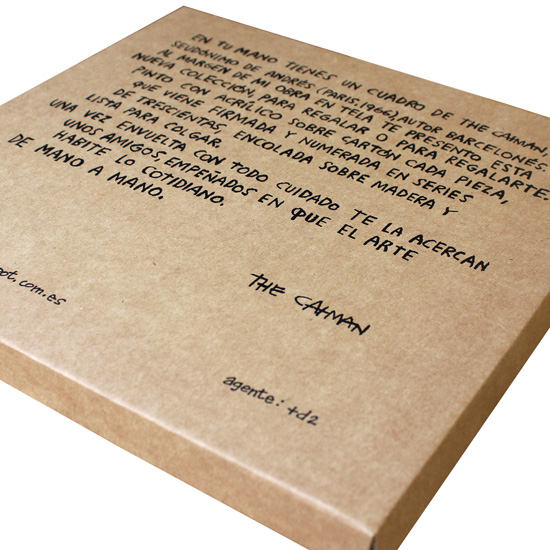 EN TU MANO TIENES UN CUADRO DE THE CAIMAN,
SEUDÓNIMO DE ANDRÉS (PARIS, 1966), AUTOR BARCELONÉS.
AL MARGEN DE MI OBRA EN TELA TE PRESENTO ESTA
NUEVA COLECCIÓN, PARA REGALAR O PARA REGALARTE.
PINTO CON ACRÍLICO SOBRE CARTÓN CADA PIEZA,
QUE VIENE FIRMADA Y NUMERADA EN SERIES
DE TRESCIENTAS, ENCOLADA SOBRE MADERA Y
LISTA PARA COLGAR.
UNA VEZ ENVUELTA CON TODO CUIDADO TE LA ACERCAN
UNOS AMIGOS, EMPEÑADOS EN QUE EL ARTE
HABITE LO COTIDIANO.
DE MANO A MANO.
THE CAIMAN
pot.com.es
agente: +d2